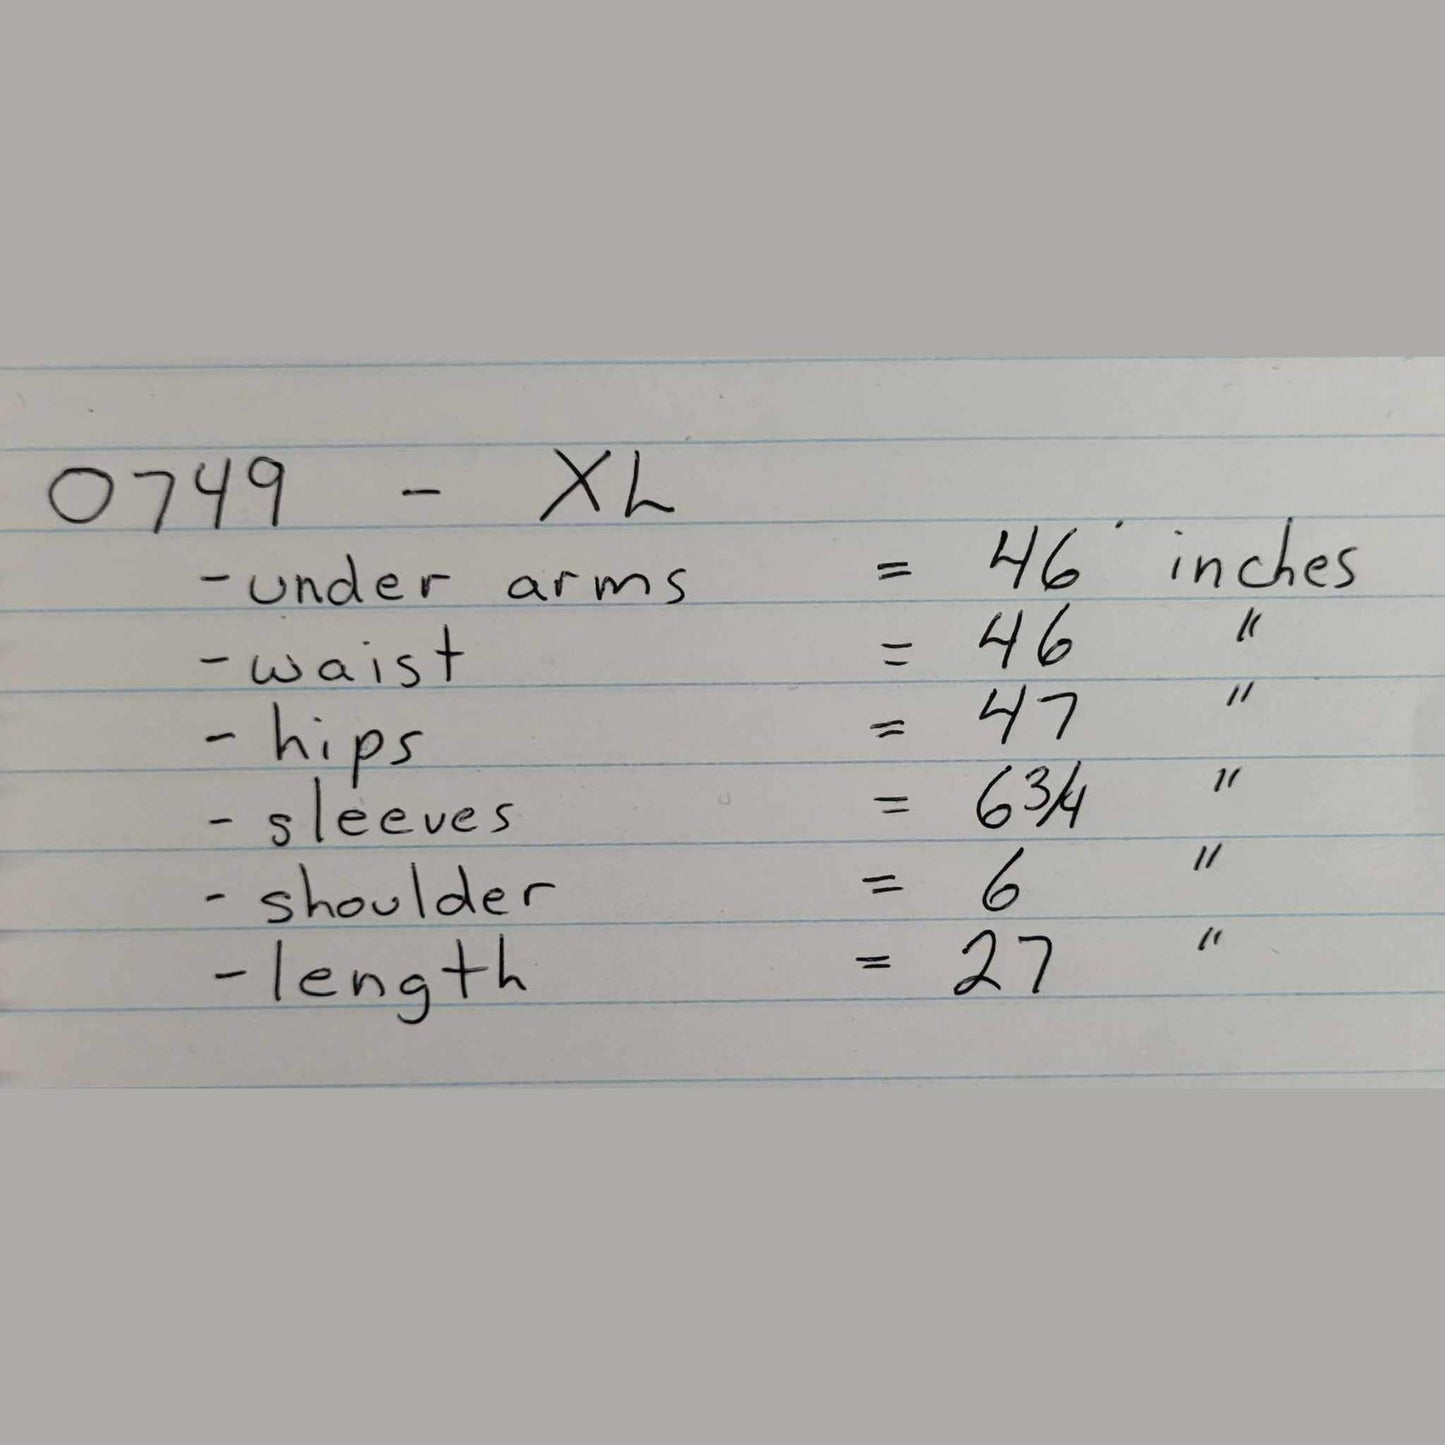 0749 - XL
- under arms = 46 inches
- waist = 46 "
- hips = 47 "
- sleeves = 6 3/4 "
- shoulder = 6 "
- length = 27 "